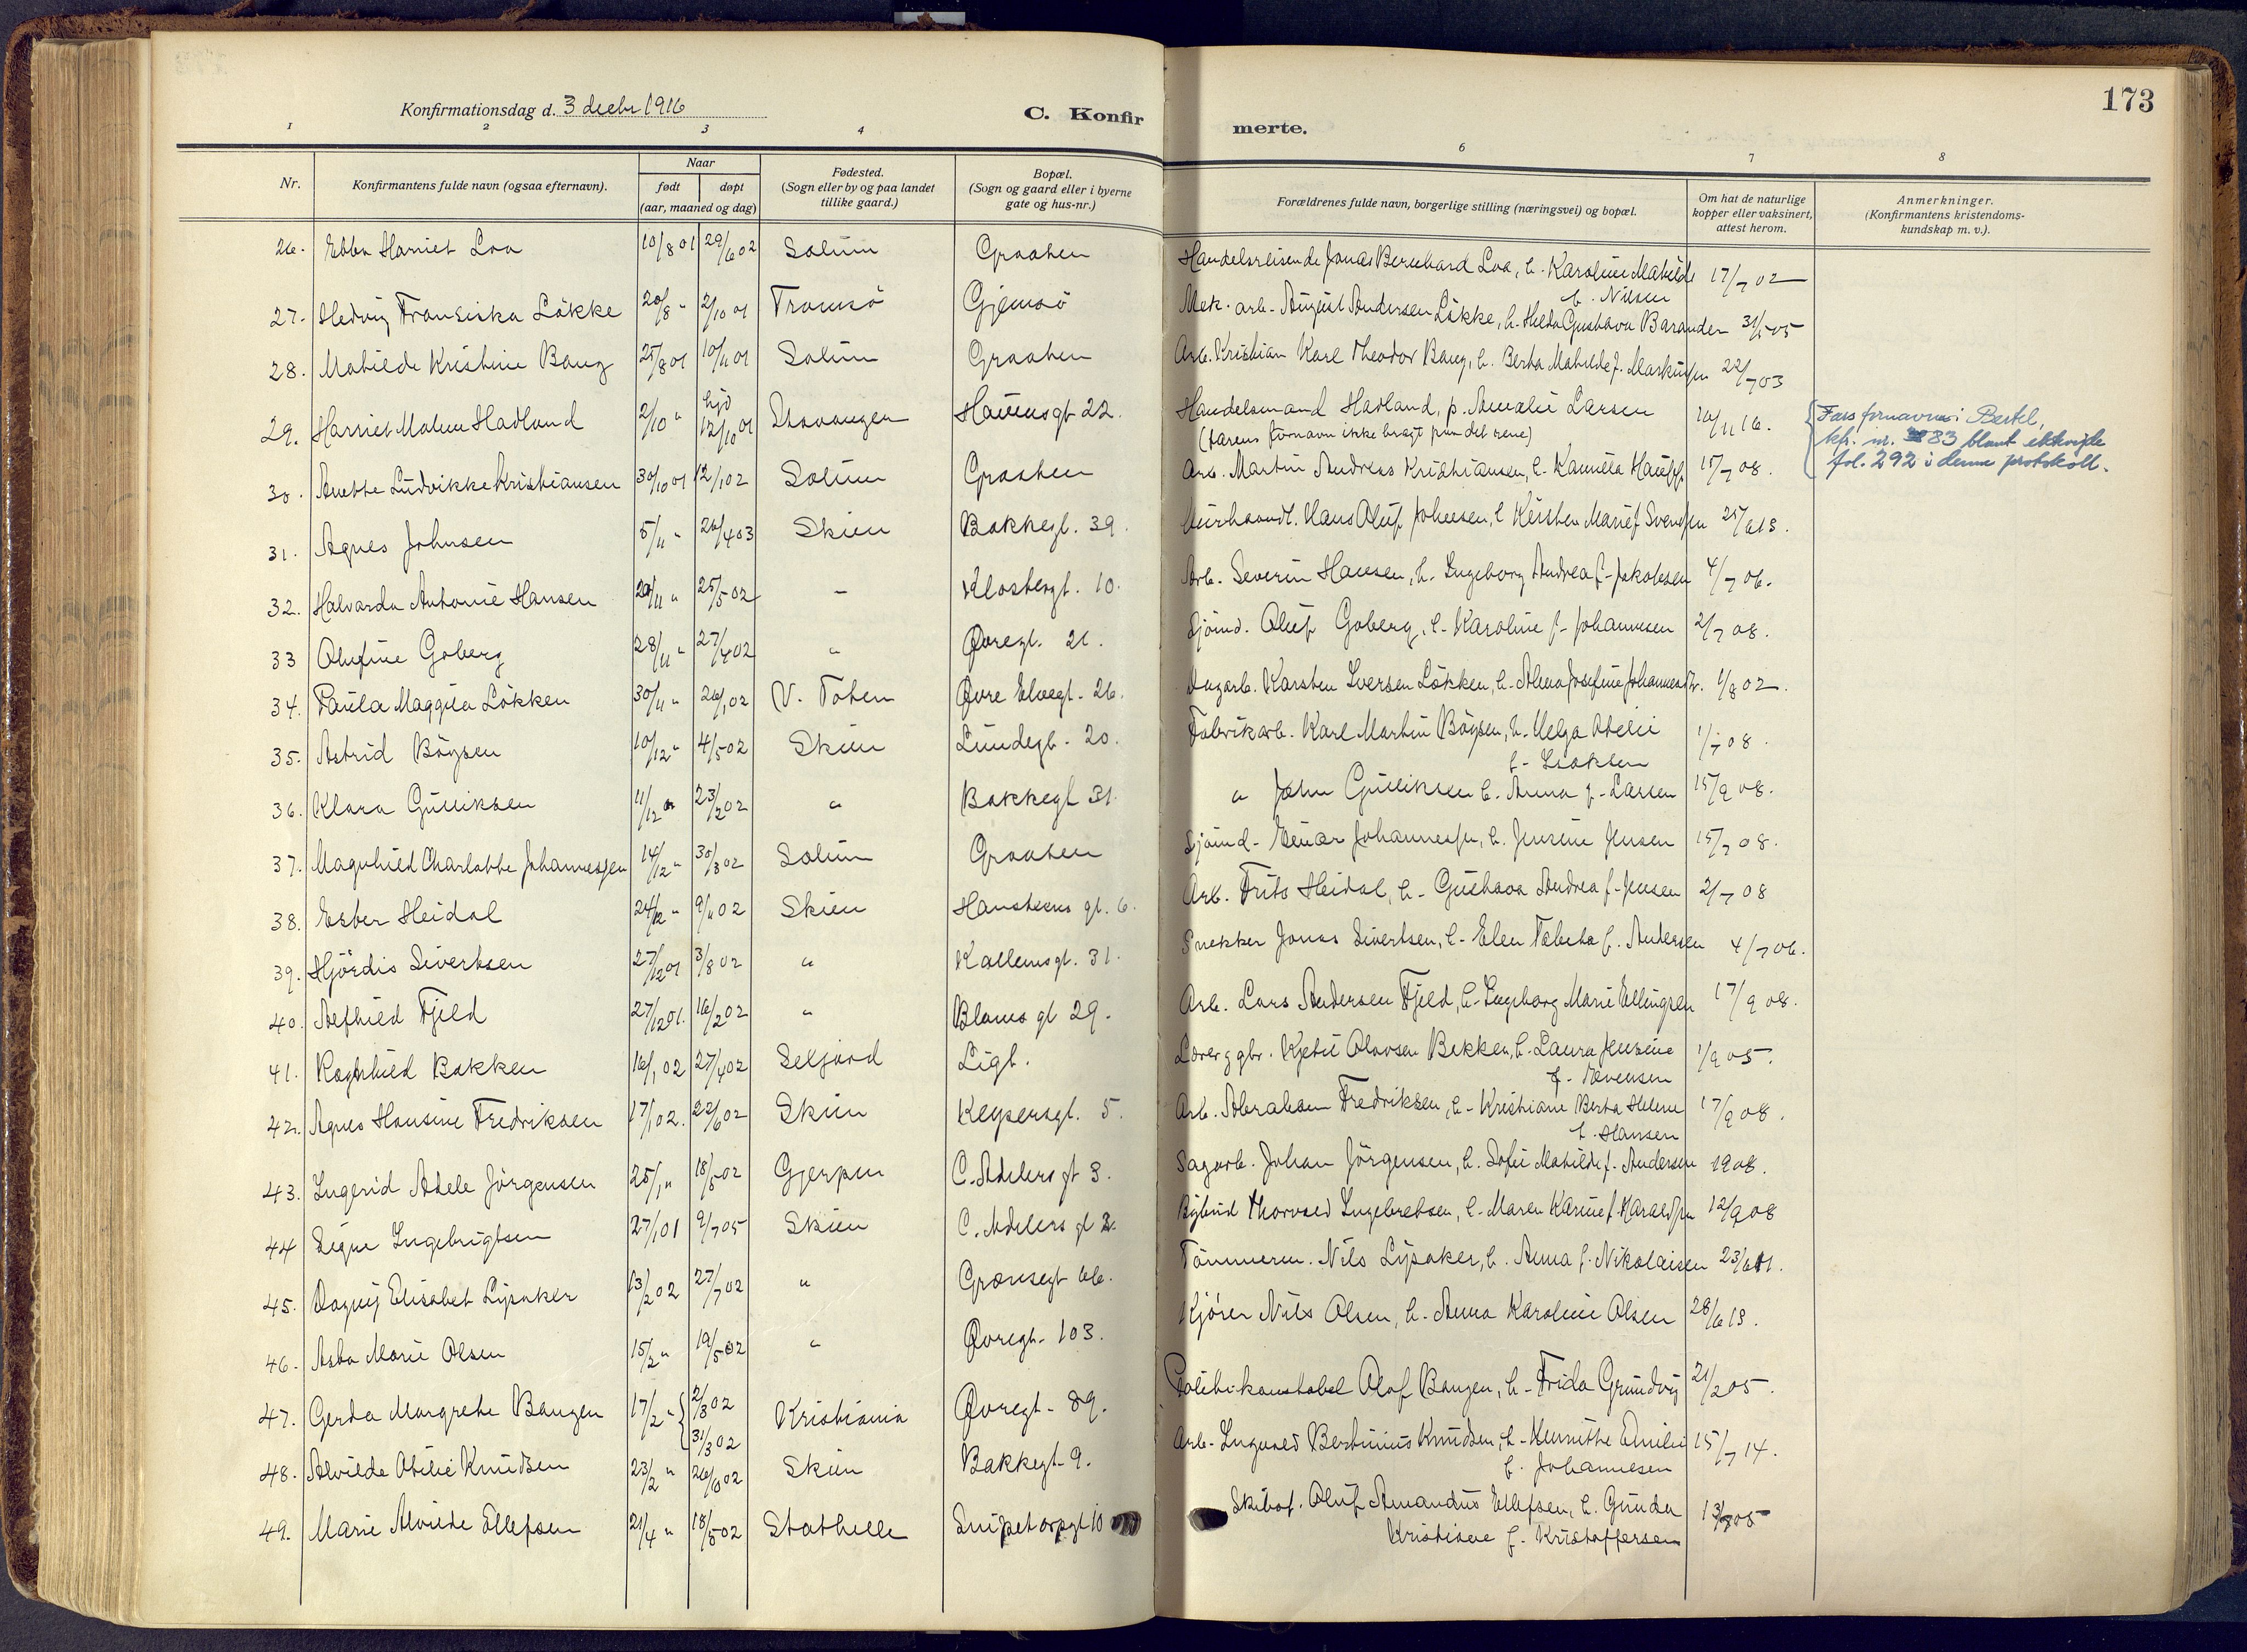 173
Konfirmationsdag d. 3 decbr 1916
C. Konfirmerte.
1 2 3 4 6 7 8
Nr. Konfirmantens fulde navn (ogsaa efternavn). Naar født døpt (aar, maaned og dag) Fødested. (Sogn eller by og paa landet tillike gaard.) Bopæl. (Sogn og gaard eller i byerne gate og hus-nr.) Forældrenes fulde navn, borgerlige stilling (næringsvei) og bopæl. Om hat de naturlige kopper eller vaksinert, attest herom. Anmerkninger. (Konfirmantens kristendoms-kundskap m. v.).
26. Ebba Harriet Loa 10/8 01 29/6 02 Solum Graaten Handelsreisende Jonas Bernhard Loa, h. Karoline Matilde f. Nilsen 17/7 02
27. Hedvig Fransiska Løkke 20/8 " 2/10 01 Tromsø Gjemsø Mek. arb. August Andersen Løkke, h. Hilda Gustava Barander 31/5 05
28. Matilde Kristine Baug 25/8 01 10/11 01 Solum Graaten Arb. Kristian Karl Theodor Baug, h. Berta Matilde f. Markussen 22/7 03
29. Harriet Malene Hadland 2/10 " hjd 12/10 01 Stavanger 22. Handelsmand Hadland, p. Amalie Larsen 16/11 16.
(Farens fornavn ikke bragt paa det rene)
{ Fars fornavn: Bertel,
kfr. nr. 83 blant ektevigde
fol. 292 i denne protokoll.
30. Anette Ludvikke Kristiansen 30/10 01 12/1 02 Solum Graaten Arb. Martin Andreas Kristiansen, h. 15/7 08.
31. Agnes Johnsen 5/11 " 26/4 03 Skien Bakkegt. 39. Hans Oluf Johnsen, h. Kirsten Marie f. Svendsen 25/6 13.
32. Halvarda Antonie Hansen 20/11 " 25/5 02 - Klostergt. 10. Arb. Severin Hansen, h. Ingeborg Andrea f. Jakobsen 4/7 06.
33 Olufine Goberg 28/11 " 27/4 02 " Øvregt. 21. Sjømd. Oluf Goberg, h. Karoline f. Johannesen 2/7 08.
34. Paula Maggila Løkken 30/11 " 26/1 02 V. Toten Øvre Elvegt. 26. Karsten Iversen Løkken, h. Alma Josefine 1/8 02.
35. Astrid Bøysen 10/12 " 4/5 02 Skien Lundegt. 20. Fabrikarb. Karl Martin Bøysen, h. Helga Otelie f. Isaksen 1/7 08.
36. Klara Gulliksen 11/12 " 23/2 02 " Bakkegt 31. " John Gulliksen h. Anna f. Larsen 15/9 08.
37. Magnhild Charlotte Johannessen 14/12 " 30/3 02 Solum Graaten Sjømd. Einar Johannessen, h. Jensine Jensen 15/7 08.
38. Ester Heidal 24/12 " 9/11 02 Skien Hansteens gt. 6. Arb. Frits Heidal, h. Gustava Andrea f. Jensen 2/7 08
39. Hjørdis Sivertsen 27/12 01 3/8 02 " Kallemsgt. 31. Snekker Jonas Sivertsen, h. Elen Tabeta f. Andersen 4/7 06.
40. Alfhild Fjeld 27/12 01. 16/2 02 " Bloms gt 29. Arb. Lars Andersen Fjeld, h. Ingeborg Marie Ellingsen 17/9 08.
41. Ragnhild Bakken 16/1 02 27/4 02 Seljord Ligt. Lærer g gbr. Kjetil Olavsen Bekken, h. Laura Jensine f. Evensen 1/9 05.
42. Agnes Hansine Fredriksen 17/1 02. 22/6 02 Skien Keysersgt. 5. Arb. Abraham Fredriksen, h. Kristiane Berta Helene f. Hansen 17/9 08.
43. Ingerid Adele Jørgensen 25/1 " 18/5 02 Gjerpen C. Adelers gt 3. Sagarb. Johan Jørgensen, h. Sofie Matilde f. Andersen 1908.
44 Signe Ingebrigtsen 27/1 01 9/7 05 Skien C. Adelers gt 2. Thorvald Ingebretsen, h. Maren Karine f. Haraldsen 12/9 08
45. Dagny Elisabet Lysaker 13/2 02 27/7 02 " Grænsegt 66. Tømmerm. Nils Lysaker, h. Anna f. Nikolaisen 23/6 11.
46. Asta Marie Olsen 15/2 " 19/5 02 " Øvregt. 103. Kjører Nils Olsen, h. Anna Karoline Olsen 28/6 13.
47. Gerda Margrete Bangen 17/2 " { 2/3 02 31/3 02 Kristiania Øvregt. 89. Politikonstabel Olaf Bangen, h. Frida Grundvig 21/2 05.
48. Alvilde Otilie Knudsen 23/2 " 26/10 02 Skien Bakkegt. 9. Arb. Ingvald Bertinius Knudsen, h. Henriette Emilie f. Johannesen 15/7 14.
49. Marie Alvilde Ellefsen 21/4 " 18/5 02 Stathelle Snipetorpgt 10 Skibsf. Oluf Amandus Ellefsen, h. Gunda Kristiane f. Kristoffersen 13/7 05